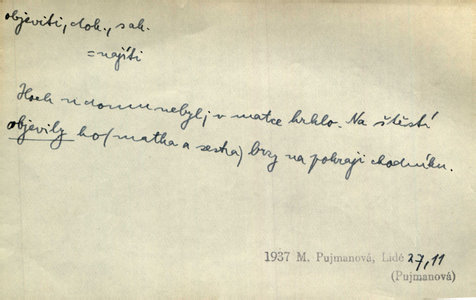 objeviti, dok., sak.
= najíti
Hoch u domu nebyl; v matce hrklo. Na štěstí
objevily ho (matka a sestra) brzy na pokraji chodníku.
1937 M. Pujmanová, Lidé 27, 11
(Pujmanová)